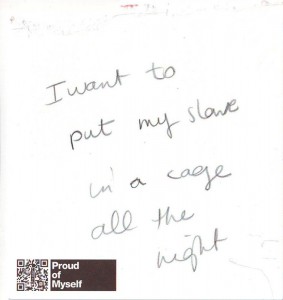 I want to
put my slave
in a cage
all the
night
Proud
of
Myself